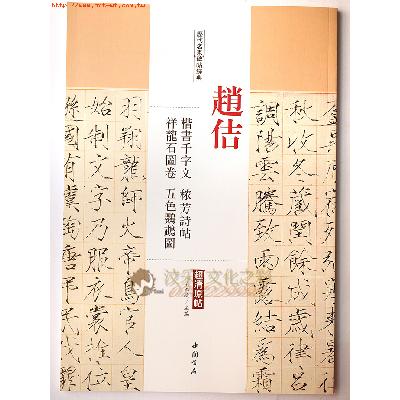 歷代名家碑帖經典
趙佶
楷書千字文 穠芳詩帖
祥龍石圖卷 五色鸚鵡圖
超清原帖
中國書店
秋收冬藏閏餘成歲律呂
調陽雲騰致雨露結為霜
羽翔龍師火帝鳥官人皇
始制文字乃服衣裳推位
國有虞陶唐弔民